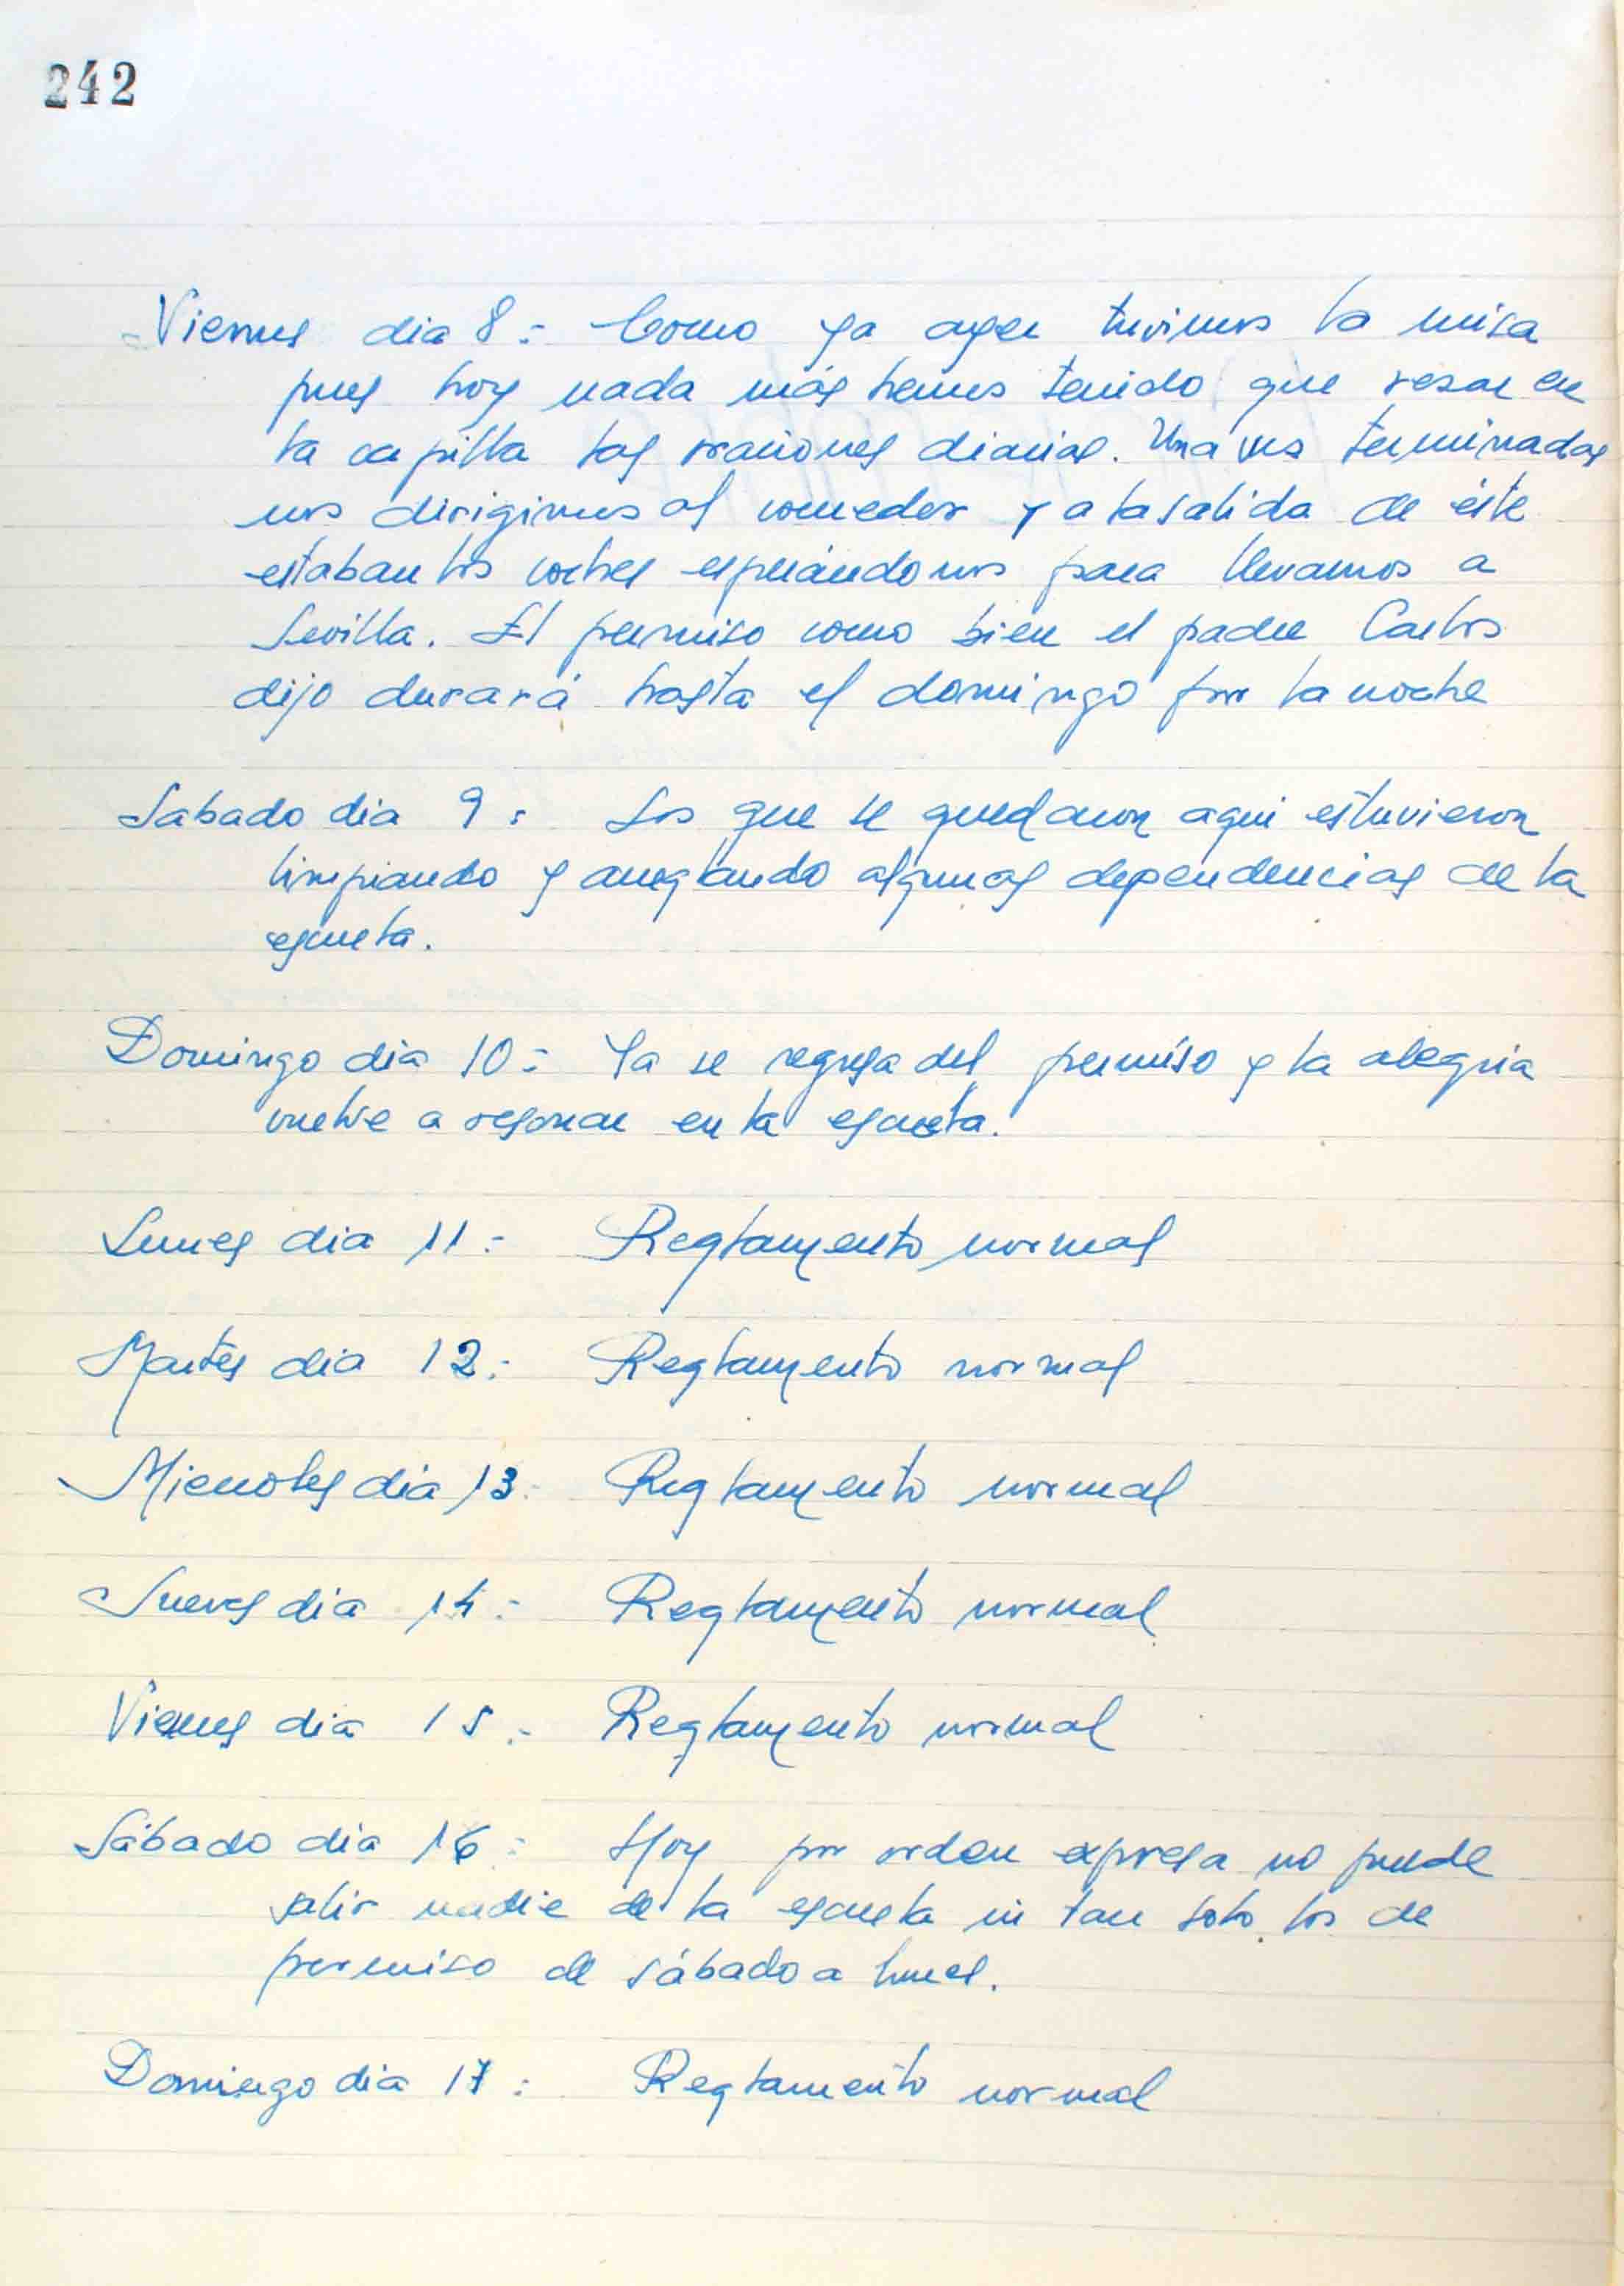 242
Viernes dia 8:- Como ya ayer tuvimos la misa
pues hoy nada más hemos tenido que resar en
la capilla las oraciones diarias. Una ves terminadas
nos dirigimos al comedor y a la salida de éste
estaban los coches esperándonos para llevarnos a
Sevilla. El permiso como bien el padre Carlos
dijo durará hasta el domingo por la noche
Sabado dia 9: Los que se quedaron aqui estuvieron
limpiando y arreglando algunas dependencias de la
escuela.
Domingo dia 10:- Ya se regresa del permiso y la alegria
vuelve a resonar en la escuela.
Lunes dia 11:- Reglamento normal
Martes dia 12:- Reglamento normal
Miercoles dia 13:- Reglamento normal
Jueves dia 14:- Reglamento normal
Viernes dia 15:- Reglamento normal
Sábado dia 16:- Hoy por orden expresa no puede
salir nadie de la escuela ni tan solo los de
permiso de sábado a lunes.
Domingo dia 17: Reglamento normal